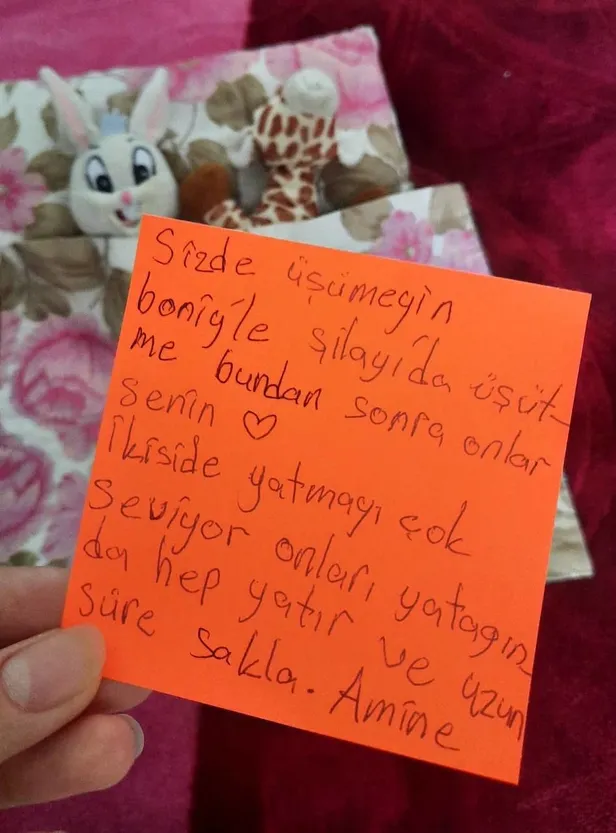 Sizde üşümeyin
boniyle şilayı'da üşüt-
me bundan sonra onlar
senin ♡
ikiside yatmayı çok
seviyor onları yatağın
da hep yatır ve uzun
süre sakla. Amine